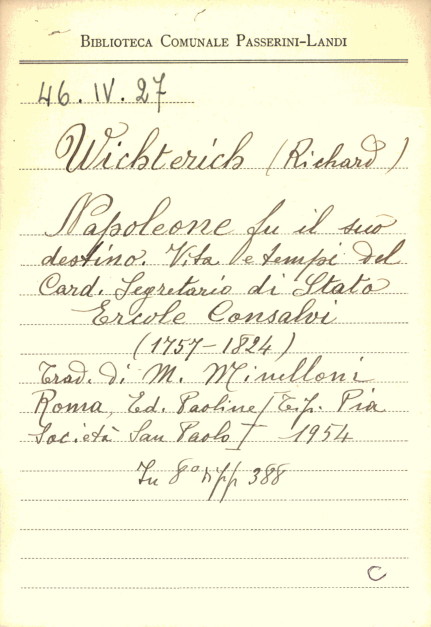 BIBLIOTECA COMUNALE PASSERINI-LANDI
46. IV. 27
Wichterich (Richard)
Napoleone fu il suo
destino. Vita e tempi del
Card. Segretario di Stato
Ercole Consalvi
(1757-1824)
Trad. di M. Minelloni
Roma, Ed. Paoline [Tip. Pia
Società San Paolo] 1954
In 8° pp 388
C